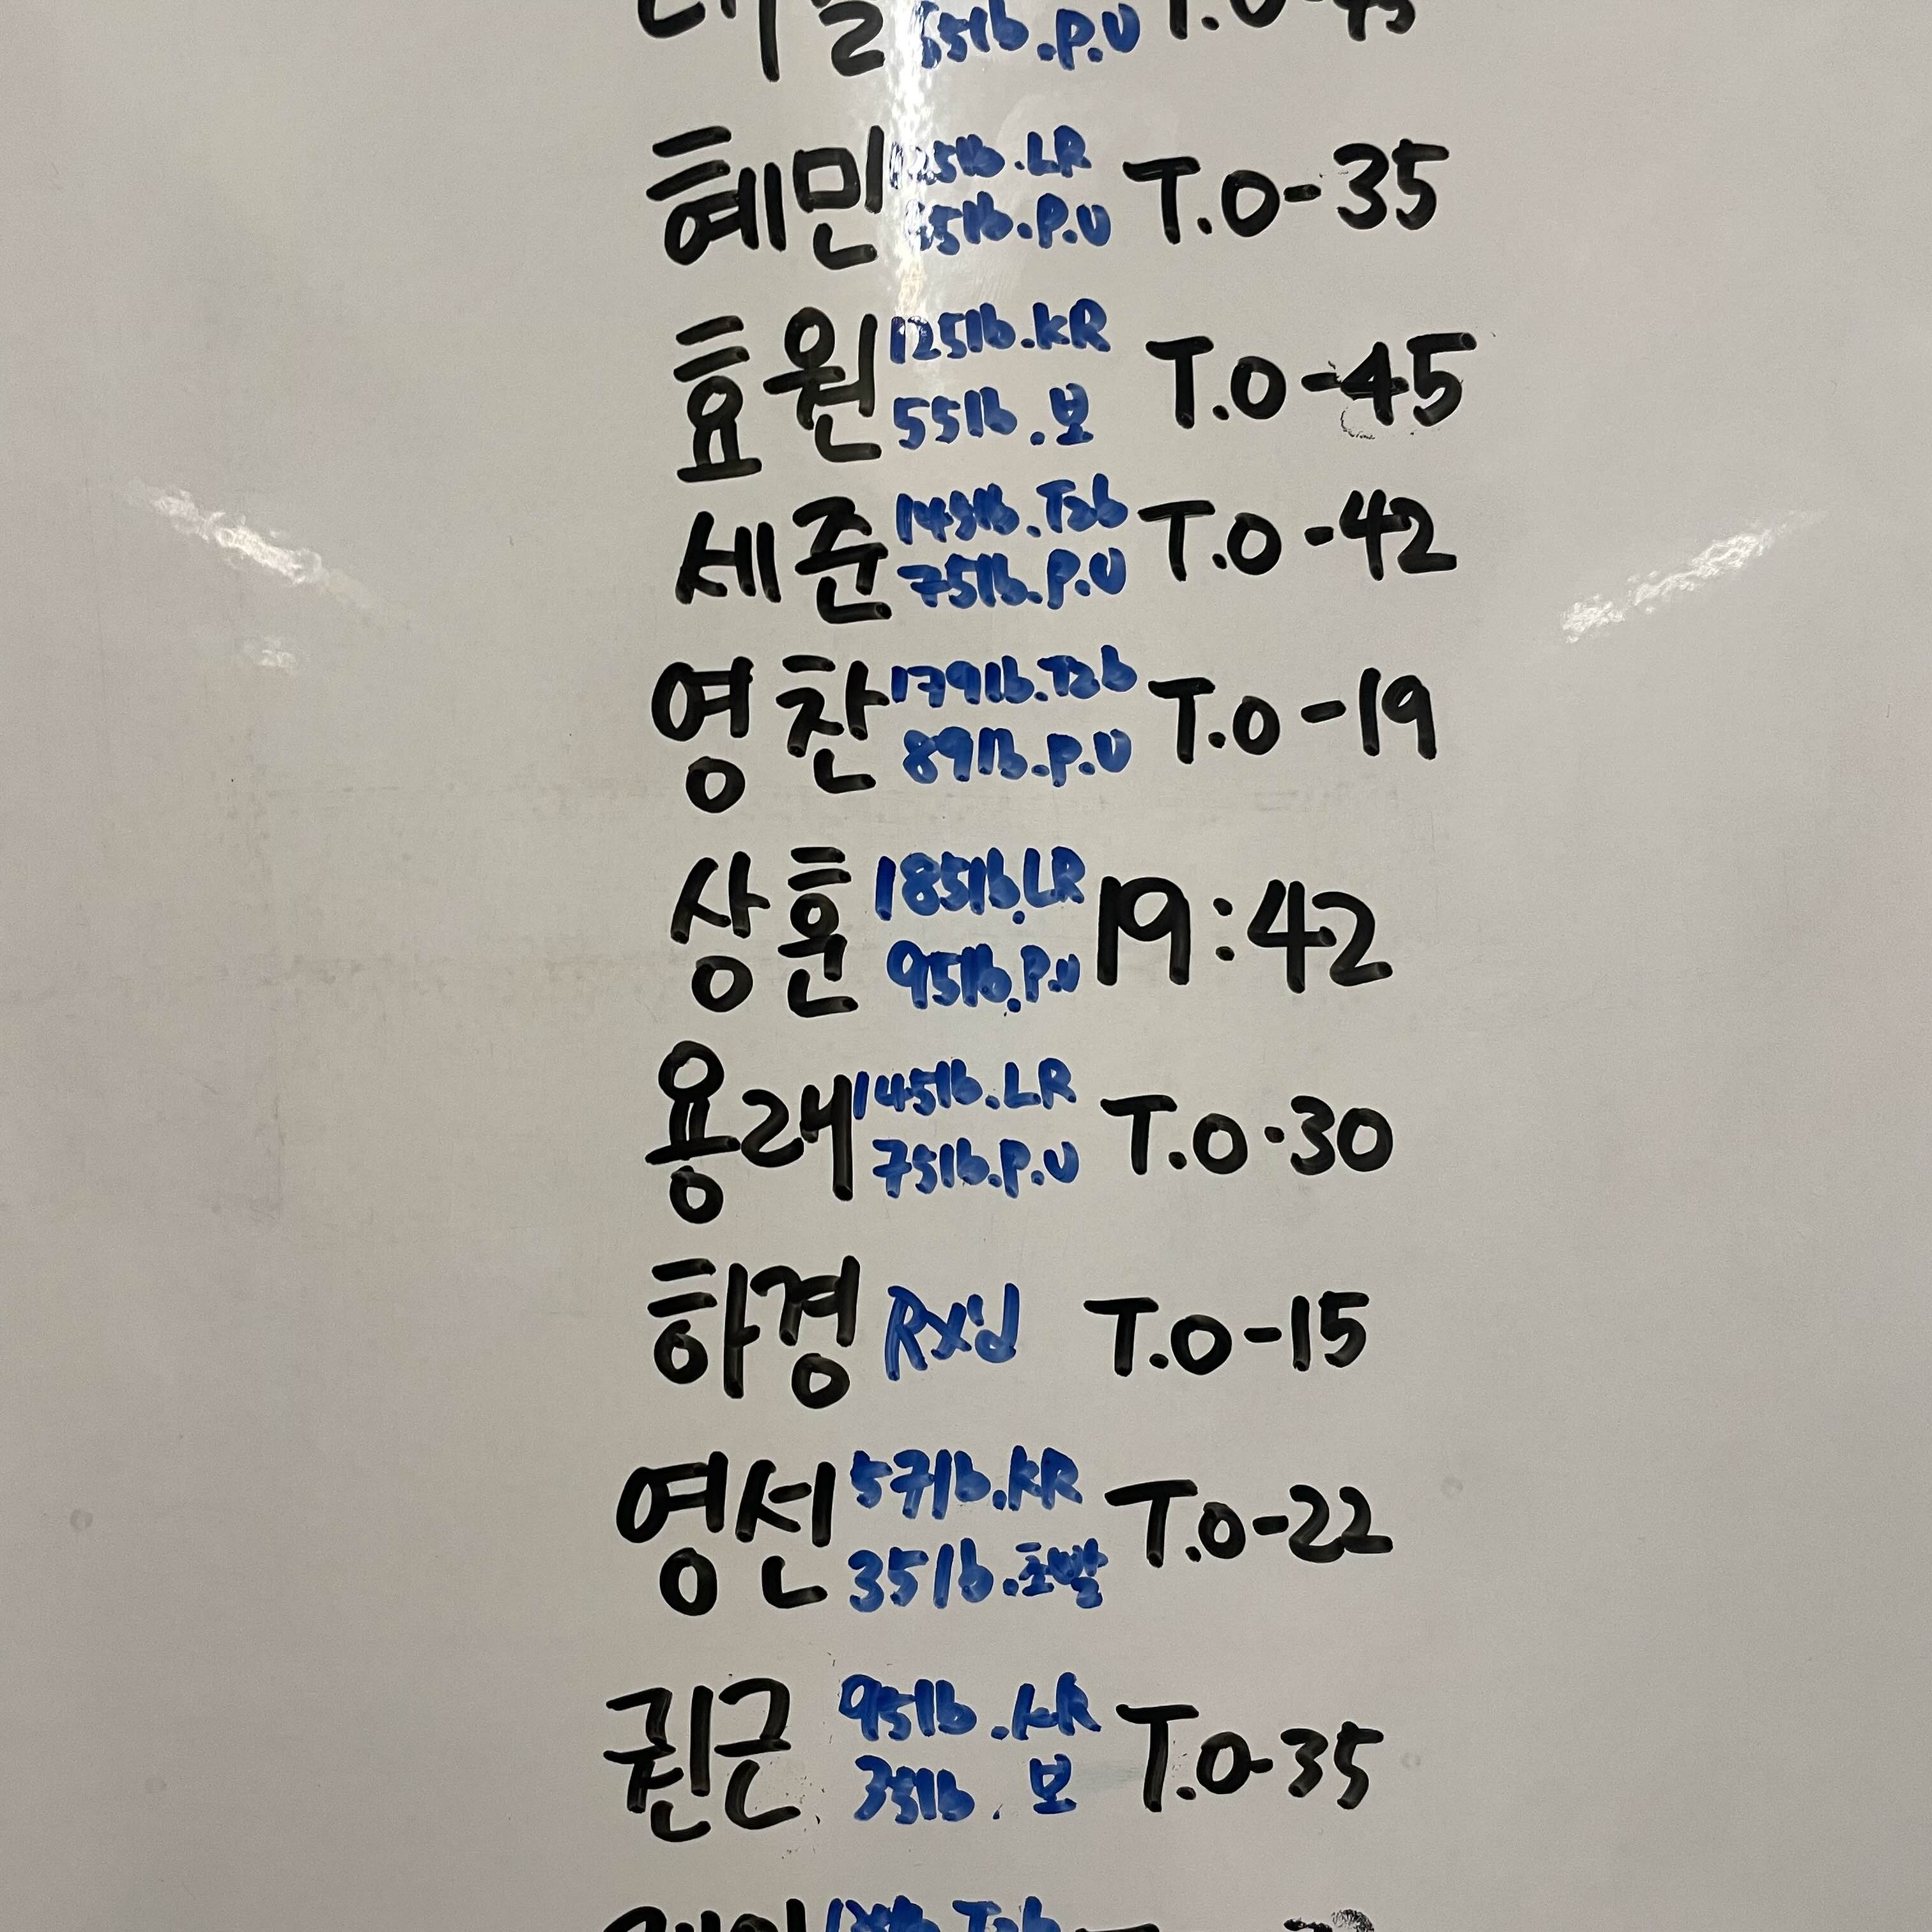 65lb.P.U T.O-45
혜민 125lb.LR T.O-35
65lb.P.U
효원 125lb.KR T.O-45
55lb.보
세준 143lb.T2b T.O-42
75lb.P.U
영찬 179lb.T2b T.O-19
89lb.P.U
상훈 185lb.LR 19:42
95lb.P.U
용래 145lb.LR T.O-30
75lb.P.U
하경 RX'd T.O-15
영선 57lb.KR T.O-22
35lb.초밥
권근 95lb.KR T.O-35
35lb.보